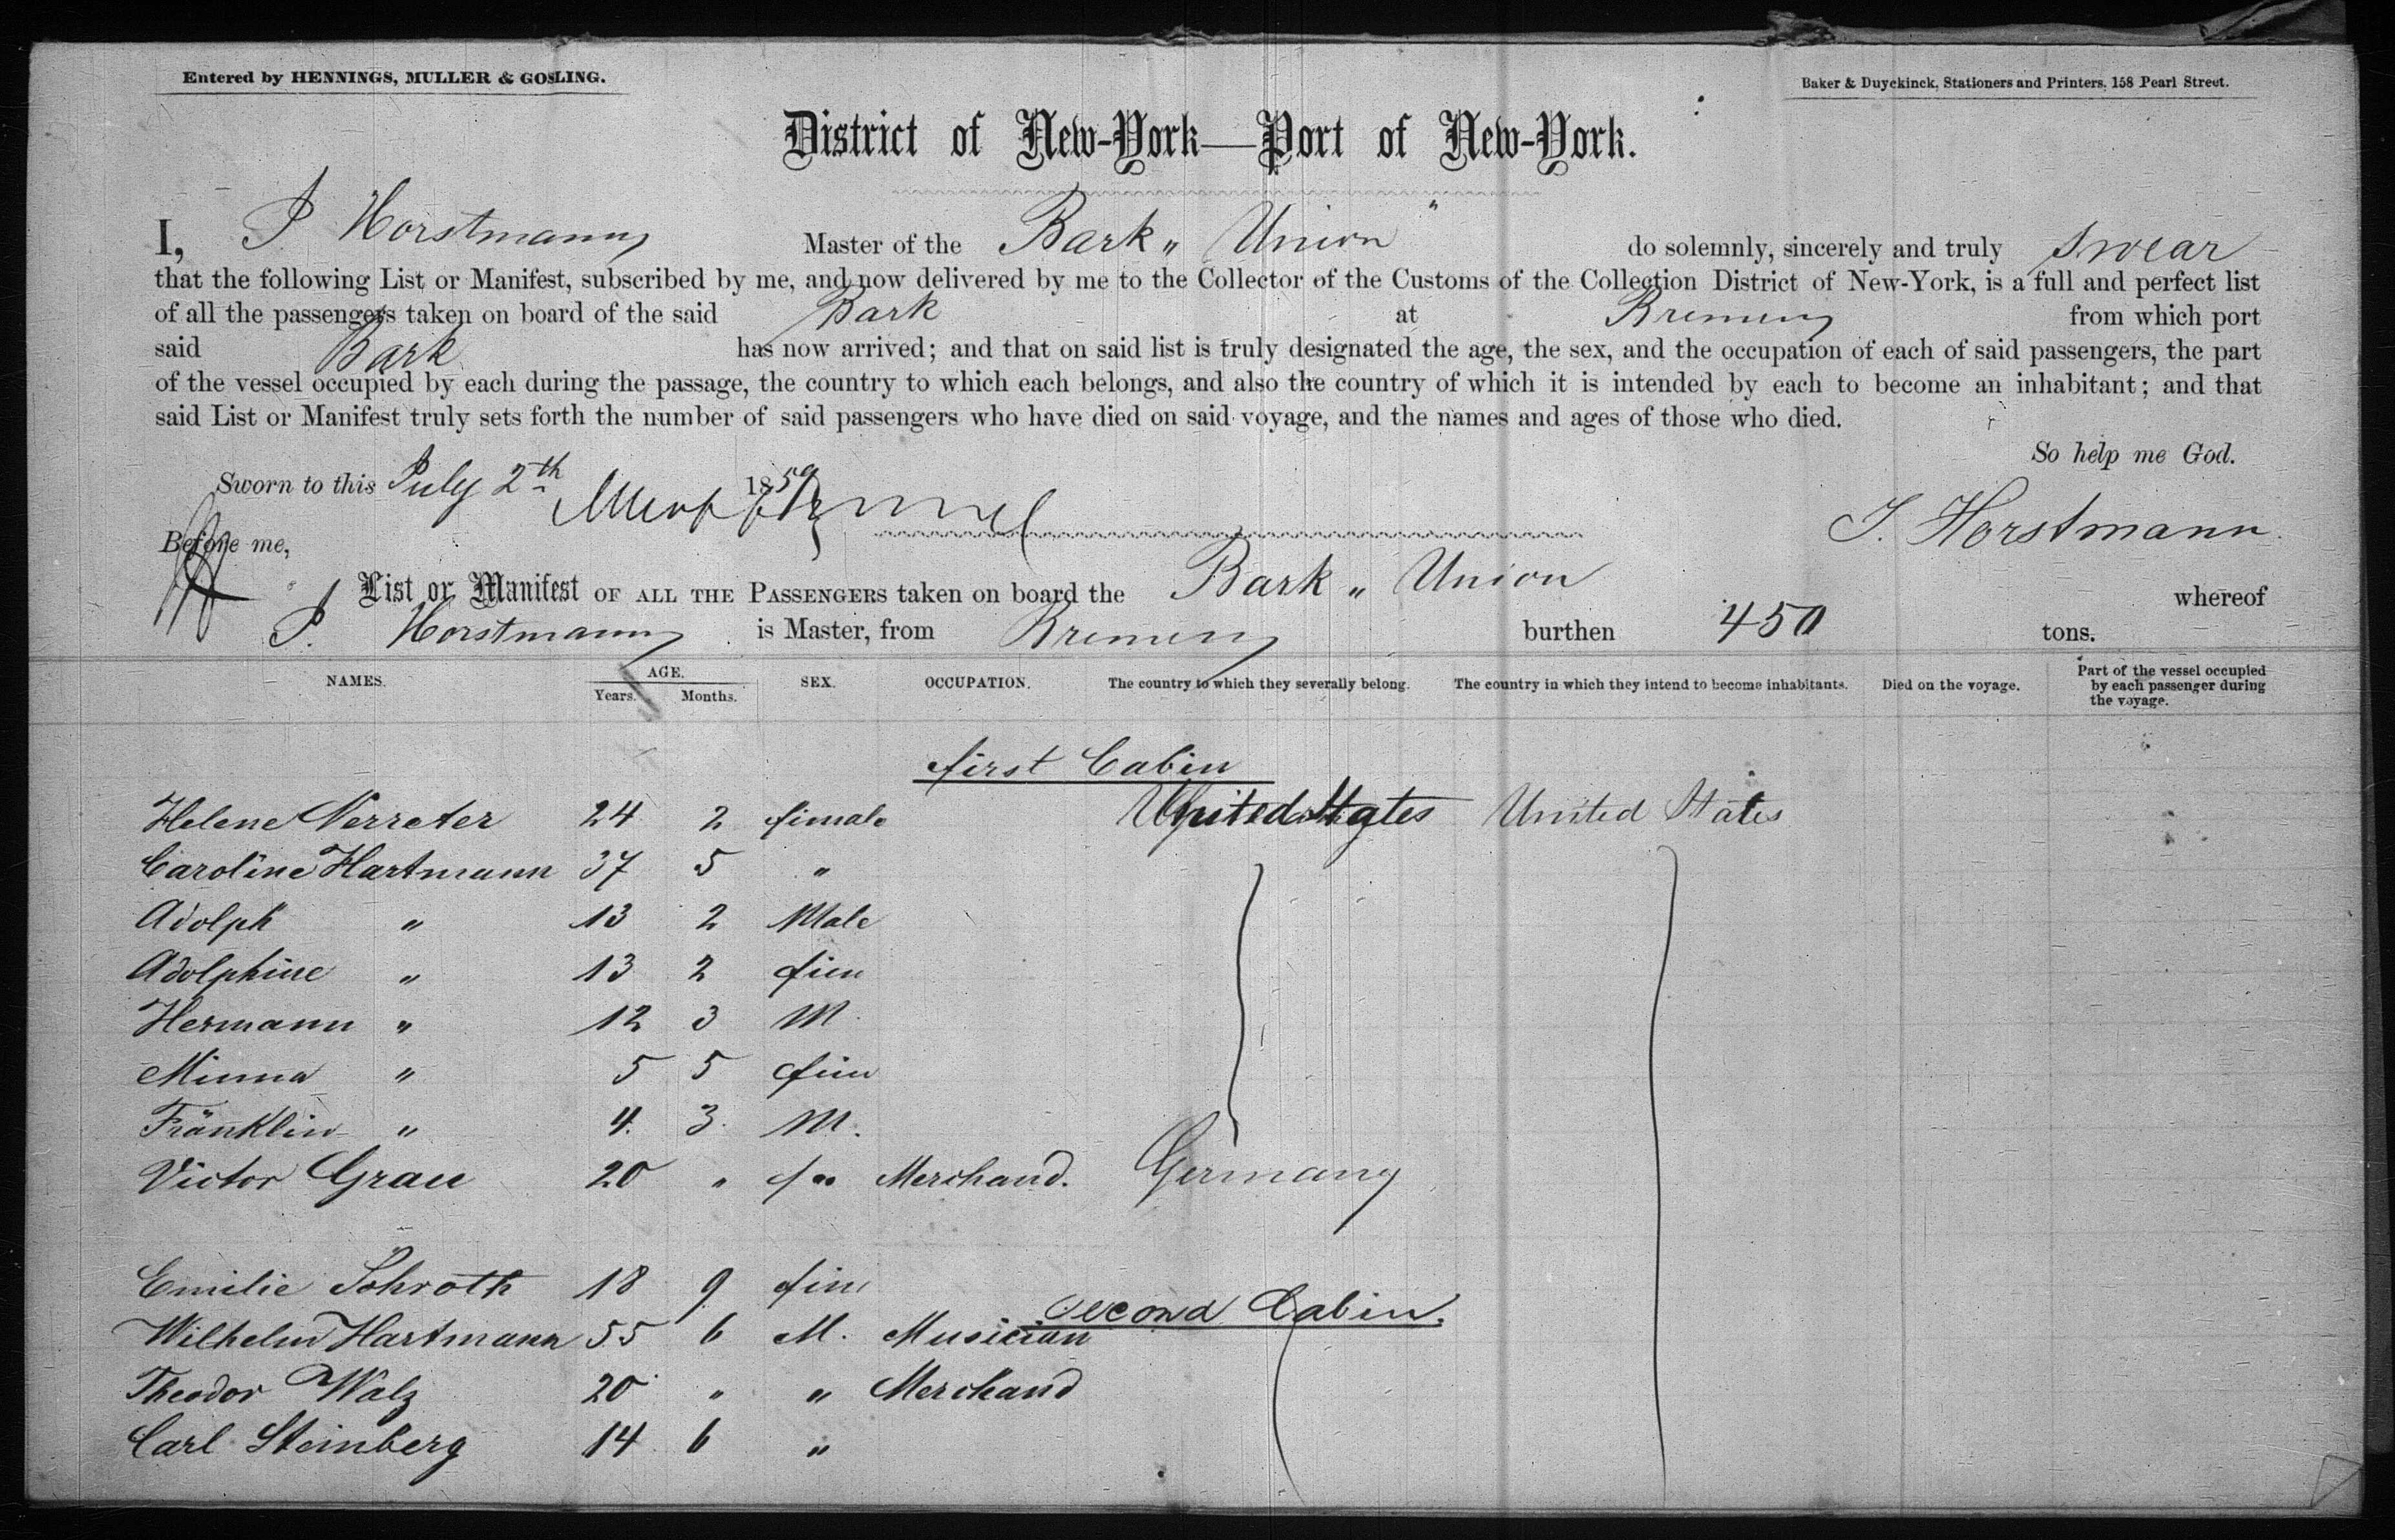 Entered by HENNINGS, MULLER & GOSLING.
Baker & Duyckinck, Stationers and Printers, 158 Pearl Street.
District of New-York—Port of New-York.
I, P Horstmann Master of the Bark „ Union " do solemnly, sincerely and truly swear
that the following List or Manifest, subscribed by me, and now delivered by me to the Collector of the Customs of the Collection District of New-York, is a full and perfect list
of all the passengers taken on board of the said Bark at Bremen from which port
said Bark has now arrived; and that on said list is truly designated the age, the sex, and the occupation of each of said passengers, the part
of the vessel occupied by each during the passage, the country to which each belongs, and also the country of which it is intended by each to become an inhabitant; and that
said List or Manifest truly sets forth the number of said passengers who have died on said voyage, and the names and ages of those who died.
So help me God.
Sworn to this July 2th 1859
J. Horstmann.
Before me,
List or Manifest OF ALL THE PASSENGERS taken on board the Bark „ Union whereof
P. Horstmann is Master, from Bremen burthen 450 tons.
NAMES. AGE. Years. Months. SEX. OCCUPATION. The country to which they severally belong. The country in which they intend to become inhabitants. Died on the voyage. Part of the vessel occupied by each passenger during the voyage.
first Cabin
Helene Nerreter 24 2 female United States United States
Caroline Hartmann 37 5 "
Adolph " 13 2 Male
Adolphine " 13 2 fem
Hermann " 12 3 M.
Minna " 5 5 fem
Fränklin " 4. 3. M.
Victor Grau 20 " Merchand. Germany
Emilie Schroth 18 9 fem
second Cabin.
Wilhelm Hartmann 55 6 M. Musician
Theodor Walz 20 " " Merchand
Carl Steinberg 14 6 "